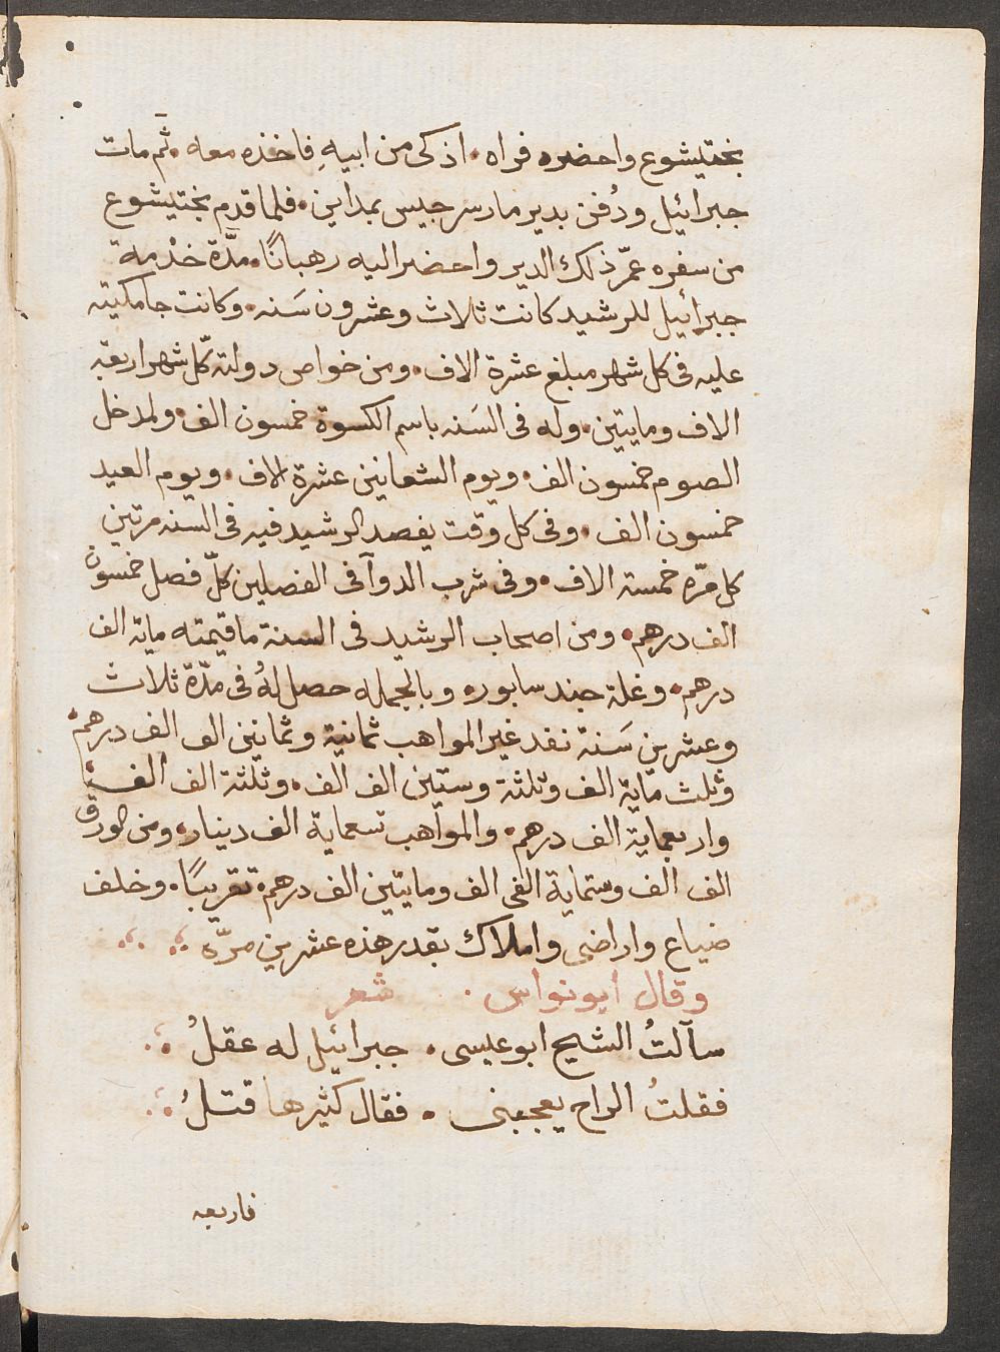 بختيشوع واحضره فراه. اذكى من ابيهِ فاخذه معه. ثَم مات
جبرائيل ودُفن بدير مارسرجيس بمداين. فلما قدِم بختيشوع
من سفره عمّر ذلك الدير واحضر اليه رهبانًا. مدَّة خدْمة
جبرائيل للرشيد كانت ثلاث وعشرون سَنه. وكانت جامكيته
عليه فى كل شهر مبلغ عشرة الاف. ومن خواص دولته كّل شهر اربعة
الاف ومايتين. وله فى السَنه باسم الكسوة خمسون الف. ولمدخل
الصوم خمسون الف. ويوم الشعانين عشرة الاف. ويوم العيد
خمسون الف. وفى كل وقت يفصد الرشيد فيه فى السنه مرتين
كل مرّه خمسة الاف. وفى شرب الدوآ فى الفصلين كلّ فصل خمسون
الف درهم. ومن اصحاب الرشيد فى السنة ما قيمته ماية الف
درهم. وغلة جند سابور. وبالجمله حصل لهُ فى مدّة ثلاث
وعشرين سَنة نقد غير المواهب ثمانية وثمانين الف الف درهم.
وثلث ماية الف وثلثة وستين الف الف. وثلثة الف الف
واربعماية الف درهم. والمواهب تسعماية الف دينار. ومن الورق
الف الف وستماية الفى الف ومايتين الف درهم تقريبًا. وخلف
ضياع واراضى واملاك بقدر هذه عشرين مرّه
وقال ابو نواس. شعر
سآلتُ الشيخ ابو عيسى. جبرائيل له عقلُ
فقلتُ الراح يعجبنى. فقال كثيرها قتلُ
فاربعه